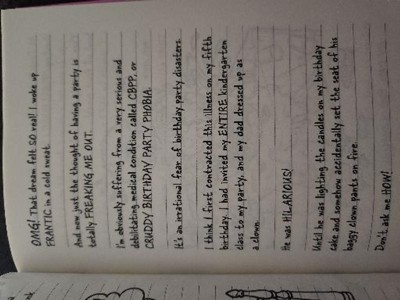 OMG! That dream felt SO real! I woke up
FRANTIC in a cold sweat.
And now just the thought of having a party is
totally FREAKING ME OUT.
I'm obviously suffering from a very serious and
debilitating medical condition called CBPP, or
CRUDDY BIRTHDAY PARTY PHOBIA.
It's an irrational fear of birthday party disasters.
I think I first contracted this illness on my fifth
birthday. I had invited my ENTIRE kindergarten
class to my party, and my dad dressed up as
a clown.
He was HILARIOUS!
Until he was lighting the candles on my birthday
cake and somehow accidentally set the seat of his
baggy clown pants on fire.
Don't ask me HOW!